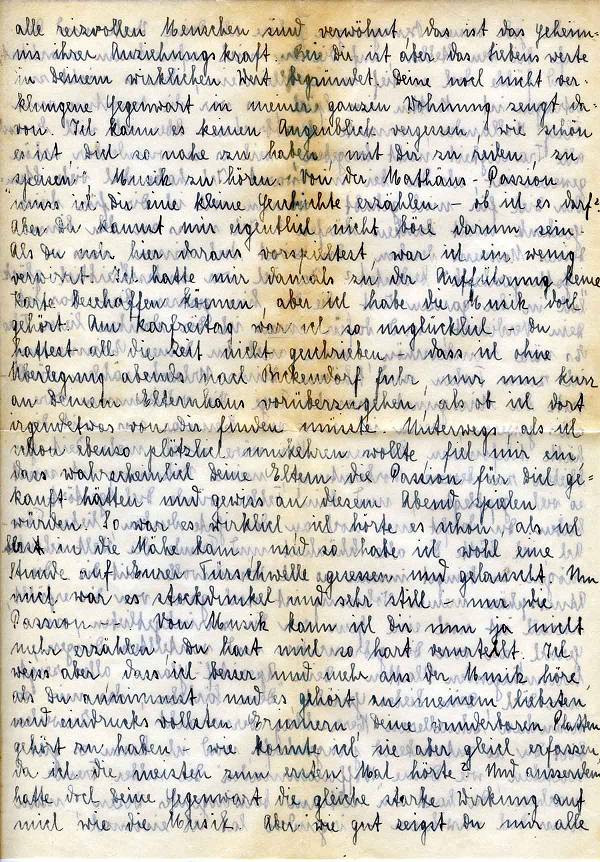 alle reizvollen Menschen sind verwöhnt, das ist das Geheim=
nis ihrer Anziehungskraft. Bei Dir ist aber das Liebenswerte
in Deinem wirklichen Wert begründet, Deine noch nicht ver-
klungene Gegenwart in meiner ganzen Wohnung zeugt da-
von. Ich kann es keinen Augenblick vergessen, wie schön
es ist, dich so nahe zu haben, mit Dir zu reden, zu
speisen, Musik zu hören. Von der Mathäus-Passion
muss ich Dir eine kleine Geschichte erzählen – ob ich es darf?
Aber Du kannst mir eigentlich nicht böse darum sein.
Als Du mir hier daraus vorspieltest, war ich ein wenig
verwirrt. Ich hatte mir damals zu der Aufführung keine
Karte beschaffen können, aber ich habe die Musik doch
gehört. Am Karfreitag war ich so unglücklich – Du
hattest all die Zeit nicht geschrieben – dass ich ohne
Überlegung abends nach Bickendorf fuhr, nur um kurz
an Deinem Elternhaus vorüberzugehen, als ob ich dort
irgendetwas von Dir finden müsste. Unterwegs, als ich
schon ebenso plötzlich umkehren wollte, fiel mir ein,
dass wahrscheinlich Deine Eltern die Passion für Dich ge=
kauft hätten und gewiss an diesem Abend spielen
würden. So war es wirklich, ich hörte es schon als ich
in die Nähe kam und so habe ich wohl eine
Stunde auf Eurer Türschwelle gesessen und gelauscht. Um
mich war es stockdunkel und sehr still – nur die
Passion – – Von Musik kann ich Dir nun ja nicht
mehr erzählen, Du hast mich so hart verurteilt. Ich
weiss aber, dass ich besser und mehr aus der Musik höre,
als Du annimmst, und es gehört zu meinem liebsten
und eindrucksvollsten Erinnern, Deine wunderbaren Platten
gehört zu haben – wie konnte ich sie aber gleich erfassen,
da ich die meisten zum ersten Mal hörte? Und ausserdem
hatte doch Deine Gegenwart die gleiche starke Wirkung auf
mich wie die Musik. Aber wie gut zeigst Du mir alle